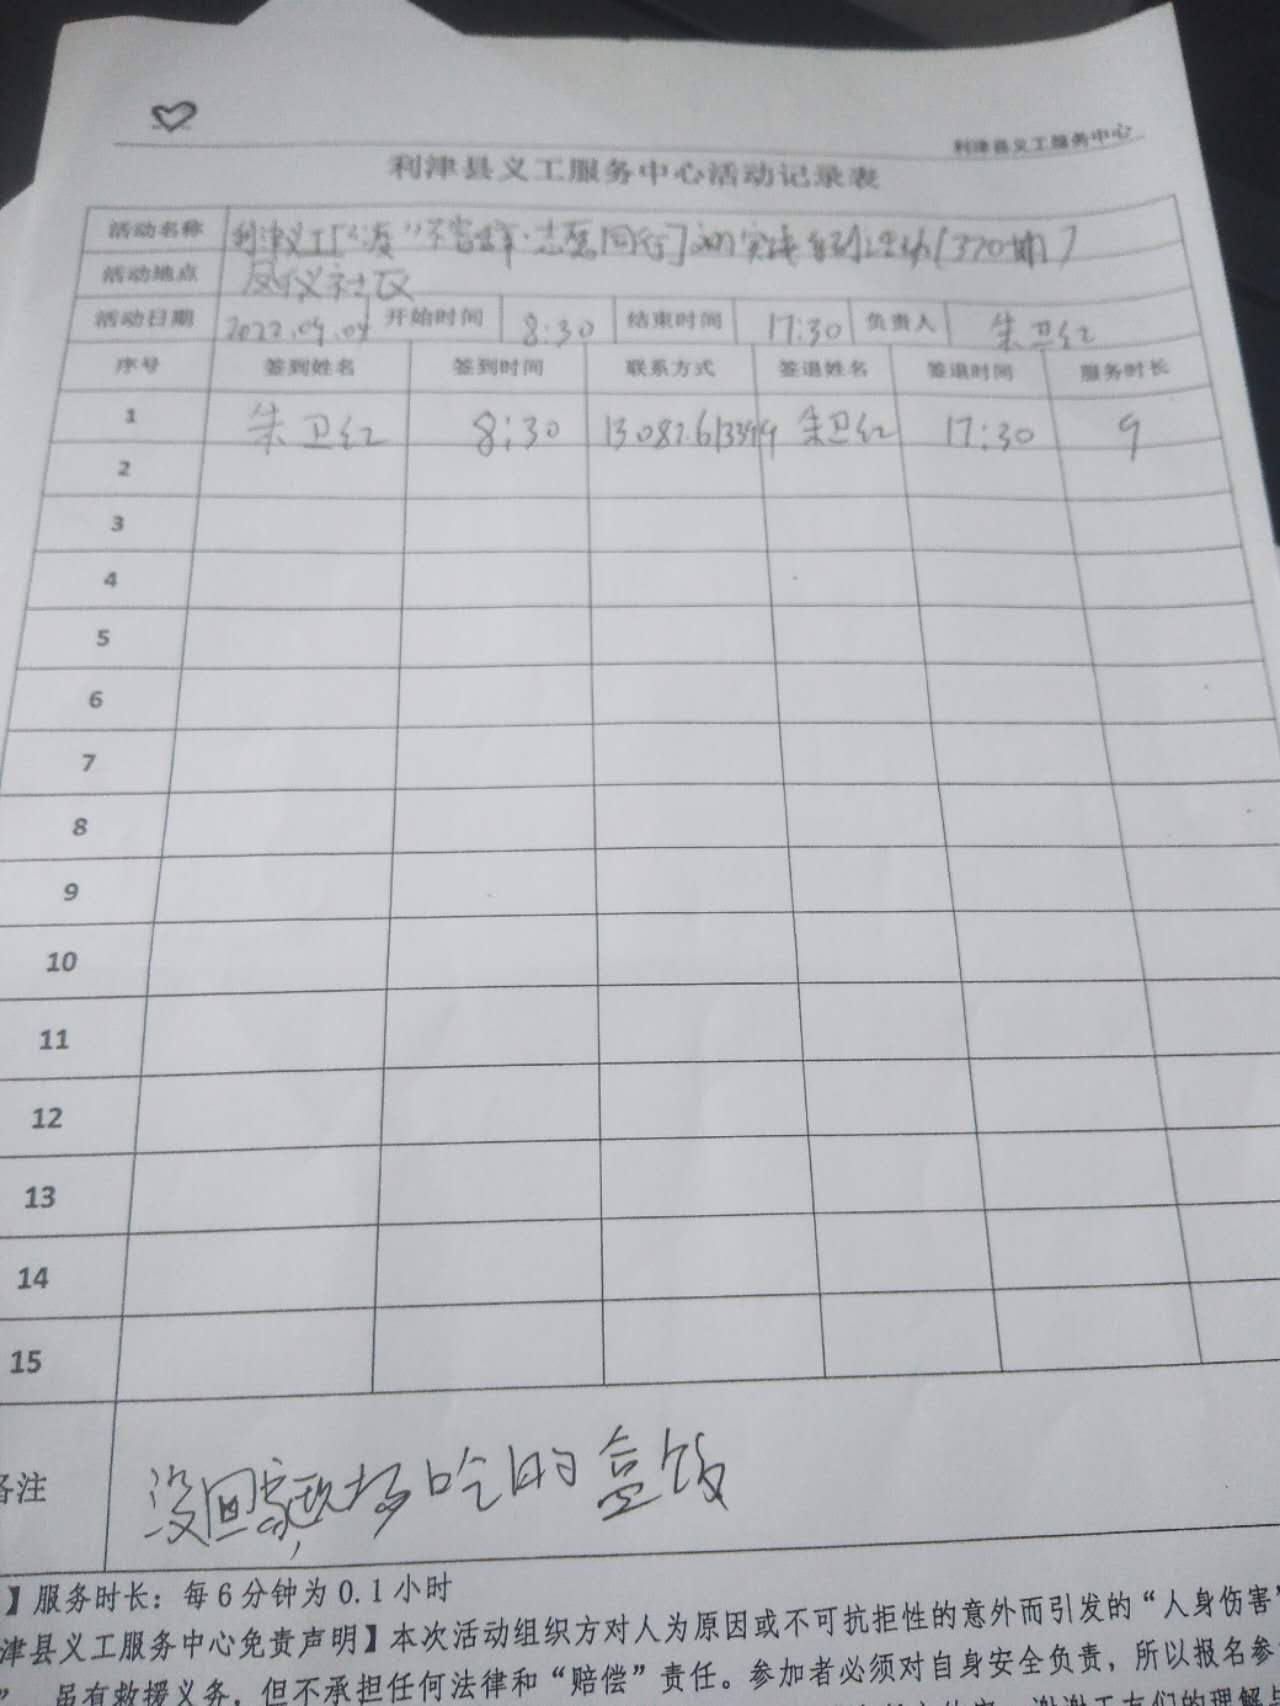 利津县义工服务中心
利津县义工服务中心活动记录表
活动名称 利津义工 志愿同行
活动地点 凤仪社区
活动日期 2022.04.04 开始时间 8:30 结束时间 17:30 负责人 朱卫红
序号 签到姓名 签到时间 联系方式 签退姓名 签退时间 服务时长
1 朱卫红 8:30 朱卫红 17:30 9
2
3
4
5
6
7
8
9
10
11
12
13
14
15
备注 没回家,现场吃的盒饭
】服务时长：每6分钟为0.1小时
津县义工服务中心免责声明】本次活动组织方对人为原因或不可抗拒性的意外而引发的“人身伤害”
”虽有救援义务，但不承担任何法律和“赔偿”责任。参加者必须对自身安全负责，所以报名参